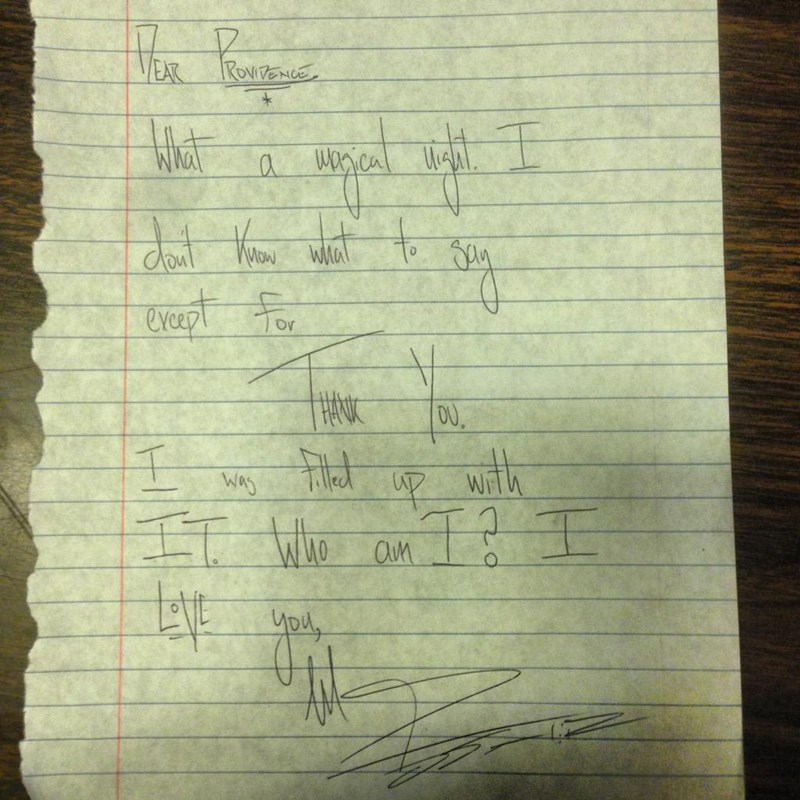 DEAR PROVIDENCE.
*
What a magical night. I
don't know what to say
except for
THANK YOU.
I was filled up with
IT. Who am I? I
LOVE you,